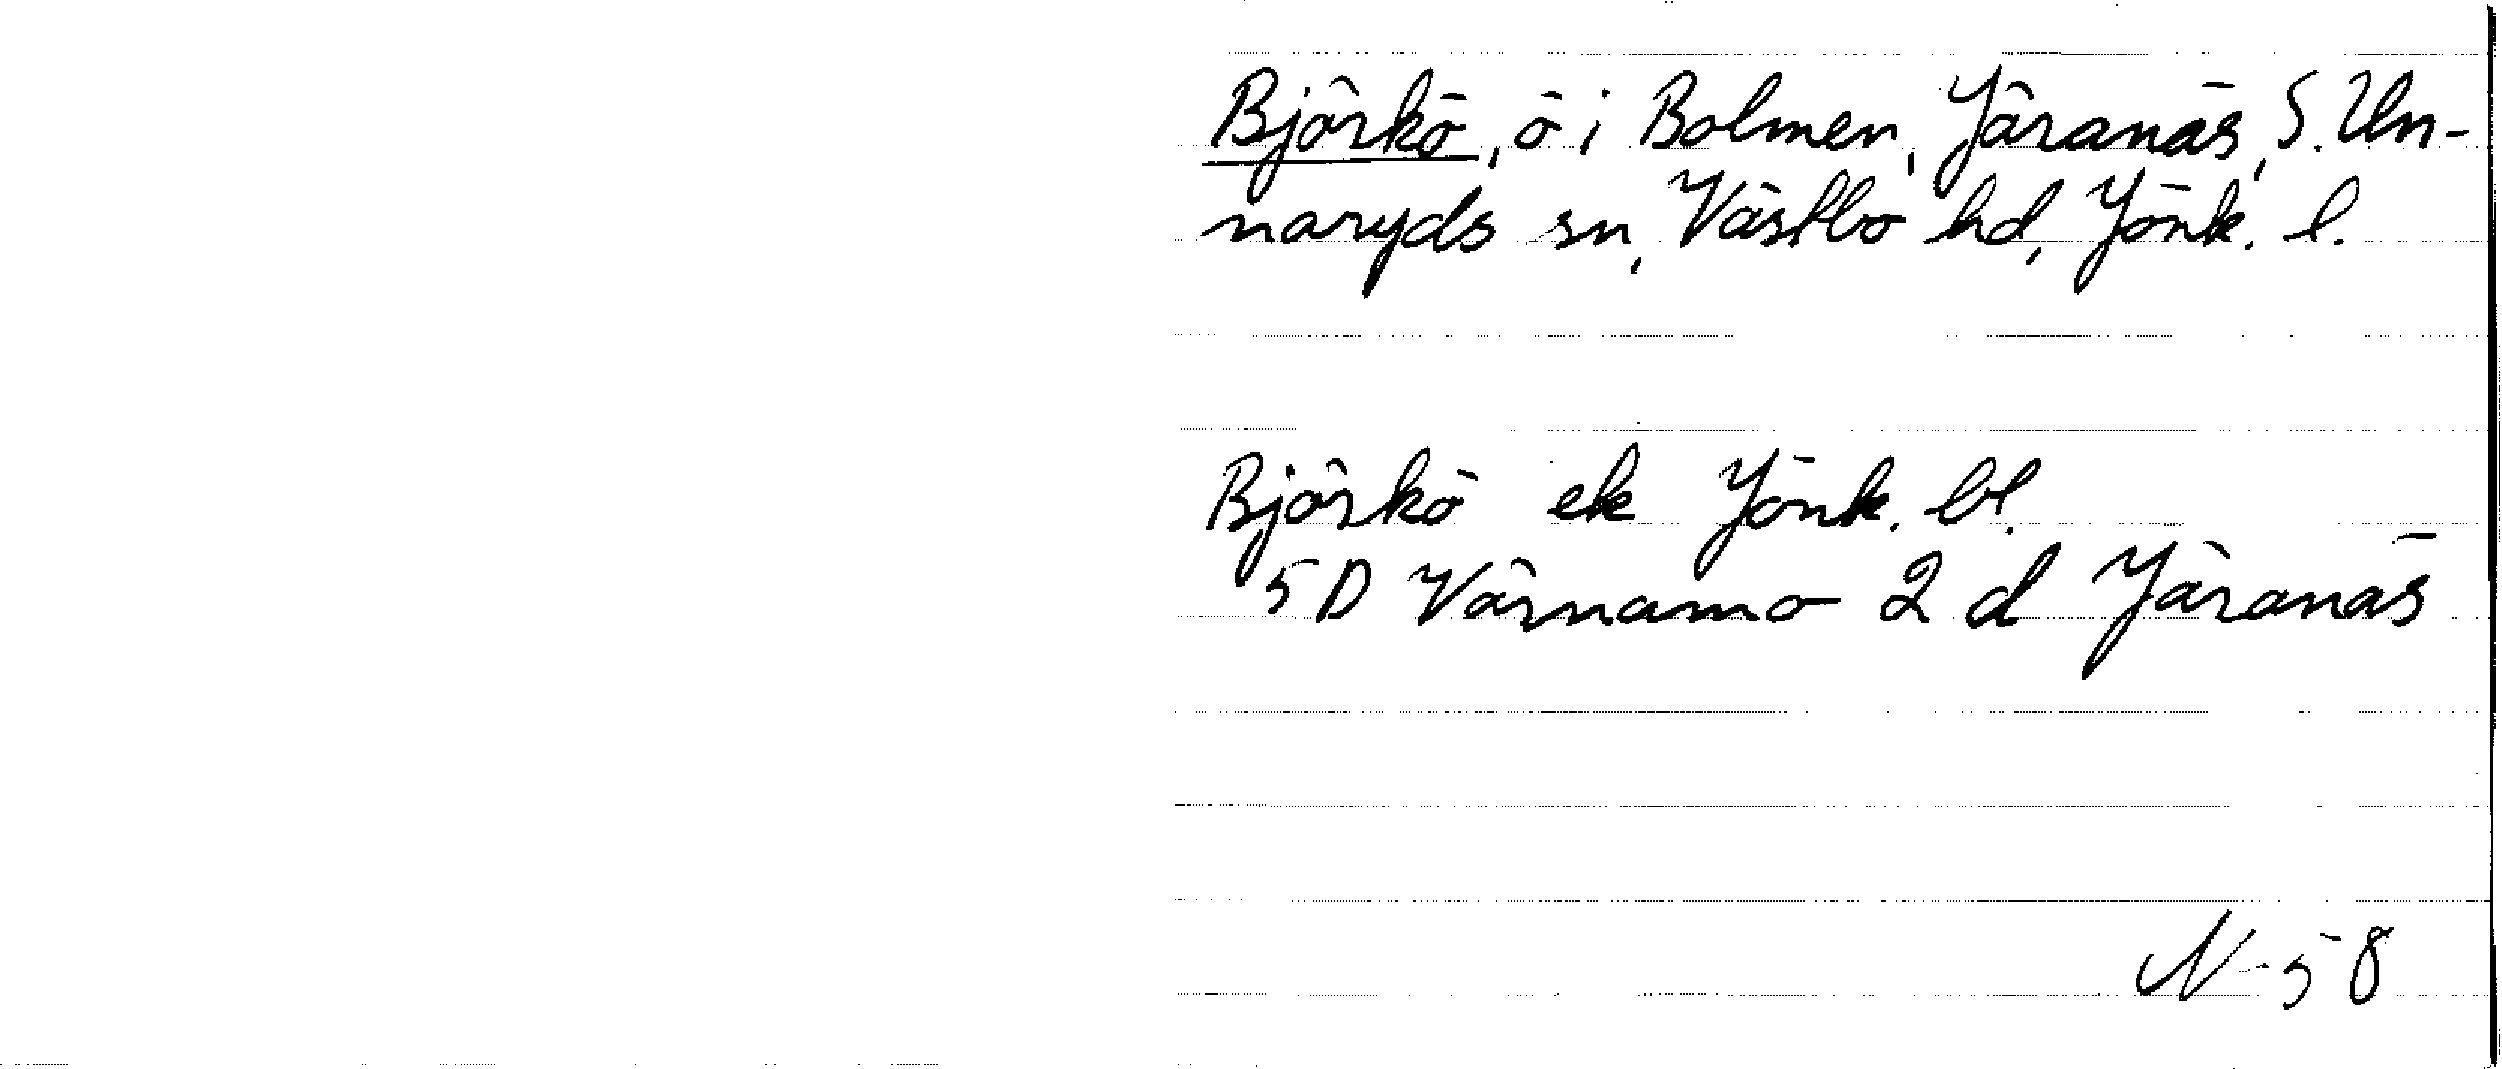 Björkö, ö i Bolmen, Järanäs, S. Un-
naryds sn, Västbo hd, Jönk. l.
Björkö ek Jönk. bl.
5D Värnamo 2 d Järanäs
N-58